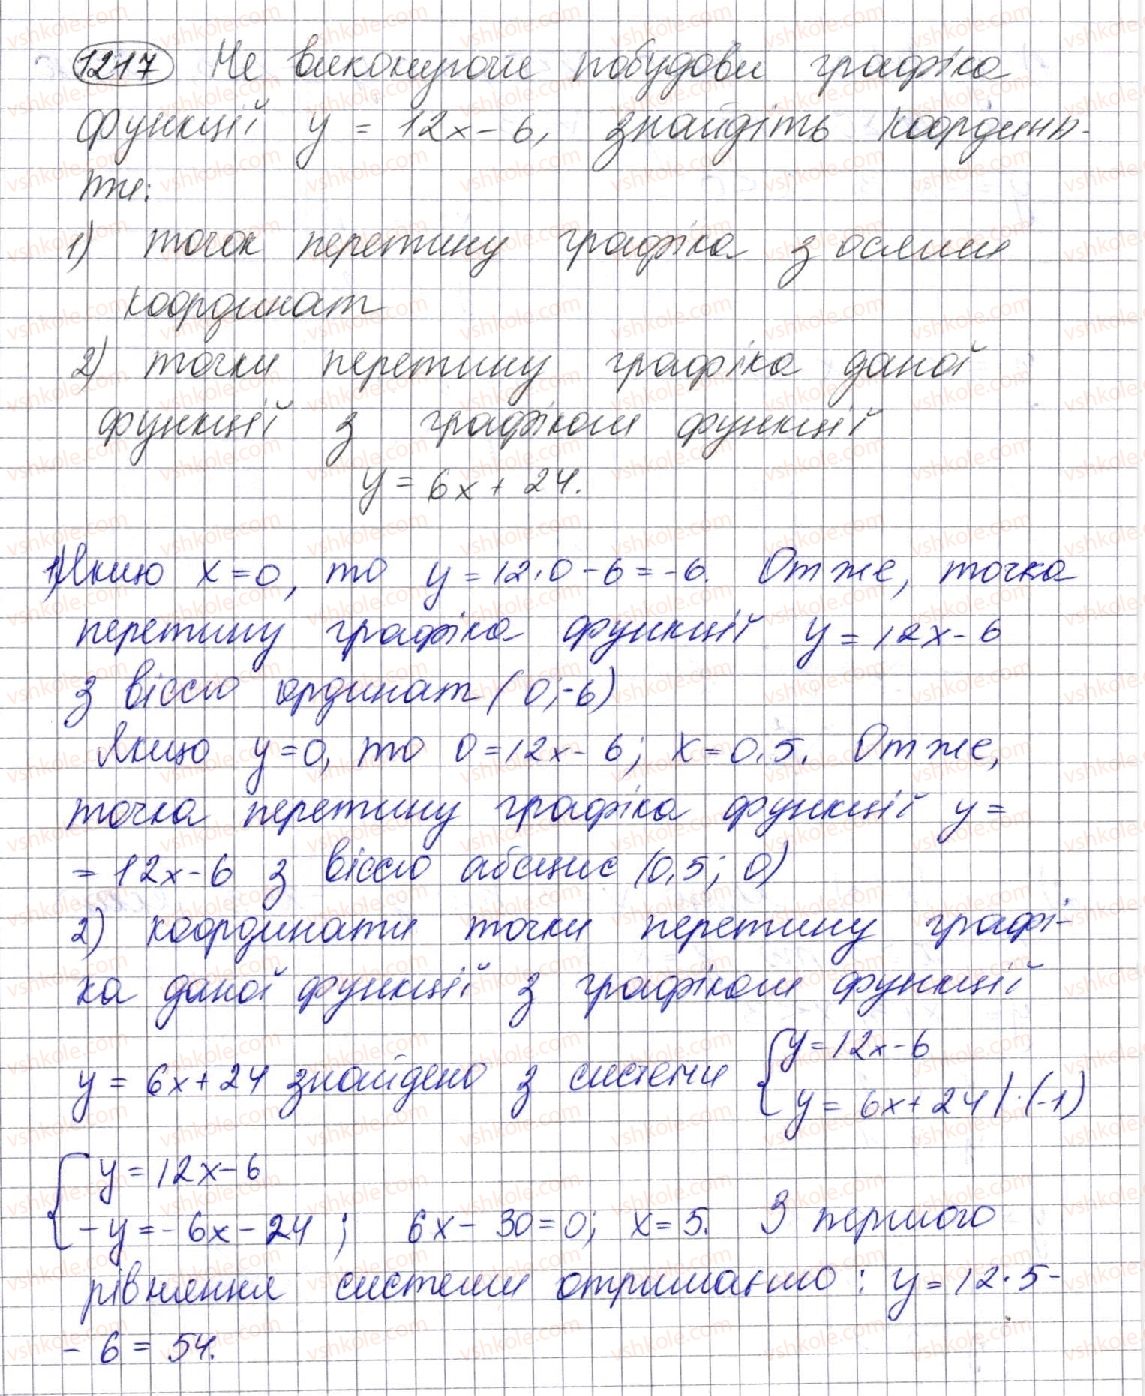 1217 Не виконуючи побудови графіка
функції y = 12x - 6, знайдіть координа-
ти:
1) точок перетину графіка з осями
координат
2) точки перетину графіка даної
функції з графіком функції
y = 6x + 24.
1) Якщо x = 0, то y = 12·0 - 6 = -6. Отже, точка
перетину графіка функції y = 12x - 6
з віссю ординат (0; -6)
Якщо y = 0, то 0 = 12x - 6; x = 0,5. Отже,
точка перетину графіка функції y =
= 12x - 6 з віссю абсцис (0,5; 0)
2) координати точки перетину графі-
ка даної функції з графіком функції
y = 6x + 24 знайдено з системи { y = 12x - 6
y = 6x + 24 | ·(-1)
{ y = 12x - 6
-y = -6x - 24 ; 6x - 30 = 0; x = 5. З першого
рівняння системи отримаємо: y = 12·5 -
- 6 = 54.